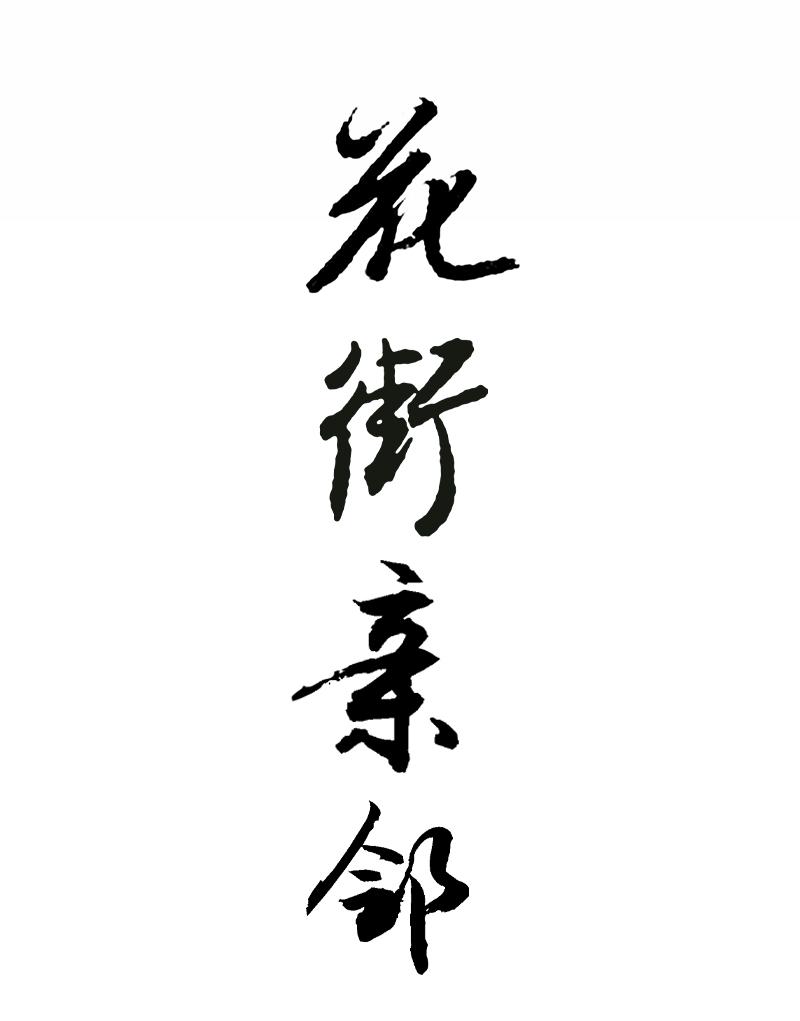 花街亲邻